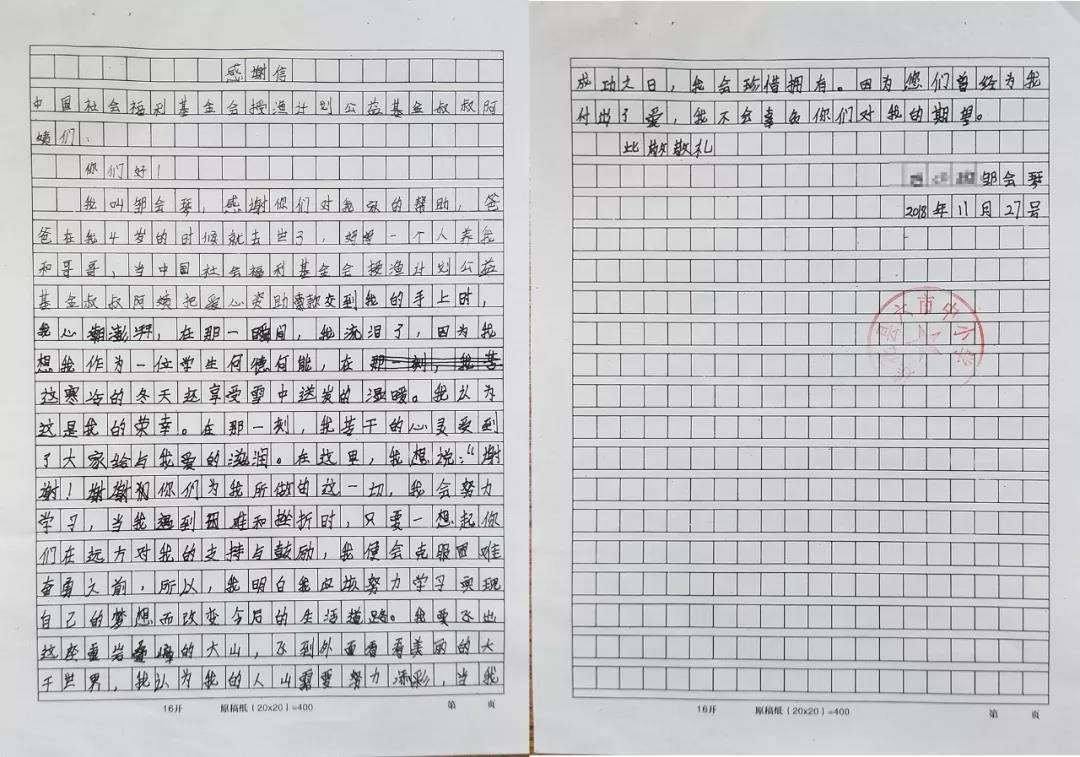 感谢信
中国社会福利基金会授渔计划公益基金叔叔阿
姨们:
你们好!
我叫邹会琴,感谢你们对我家的帮助,爸
爸在我4岁的时候就去世了,妈妈一个人养我
和哥哥,当中国社会福利基金会授渔计划公益
基金叔叔阿姨把爱心资助款交到我的手上时,
我心潮澎湃,在那一瞬间,我流泪了,因为我
想我作为一位学生何德何能,在
这寒冷的冬天还享受雪中送炭的温暖。我认为
这是我的荣幸。在那一刻,我若干的心灵受到
了大家给与我爱的滋润。在这里,我想说:“谢
谢!谢谢你们为我所做的这一切,我会努力
学习,当我遇到困难和挫折时,只要一想起你
们在远方对我的支持与鼓励,我便会克服困难
奋勇之前,所以,我明白我应该努力学习实现
自己的梦想而改变今后的生活道路。我要飞出
这座重岩叠嶂的大山,飞到外面看看美丽的大
千世男,我认为我的人山需要努力添彩,当我
16开 原稿纸(20x20)=400 第 页
成功之日,我会珍借拥有。因为您们曾经为我
付出了爱,我不会辜负你们对我的期望。
此致敬礼
邹会琴
2018年11月27号
16开 原稿纸(20x20)=400 第 页